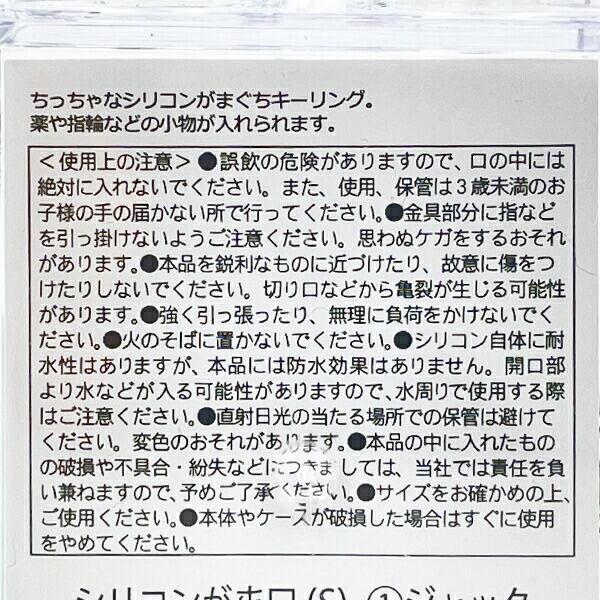 ちっちゃなシリコンがまぐちキーリング。
薬や指輪などの小物が入れられます。
＜使用上の注意＞●誤飲の危険がありますので、口の中には
絶対に入れないでください。また、使用、保管は３歳未満のお
子様の手の届かない所で行ってください。●金具部分に指など
を引っ掛けないようご注意ください。思わぬケガをするおそれ
があります。●本品を鋭利なものに近づけたり、故意に傷をつ
けたりしないでください。切り口などから亀裂が生じる可能性
があります。●強く引っ張ったり、無理に負荷をかけないでく
ださい。●火のそばに置かないでください。●シリコン自体に耐
水性はありますが、本品には防水効果はありません。開口部
より水などが入る可能性がありますので、水周りで使用する際
はご注意ください。●直射日光の当たる場所での保管は避けて
ください。変色のおそれがあります。●本品の中に入れたもの
の破損や不具合・紛失などにつきましては、当社では責任を負
い兼ねますので、予めご了承ください。●サイズをお確かめの上、
ご使用ください。●本体やケースが破損した場合はすぐに使用
をやめてください。